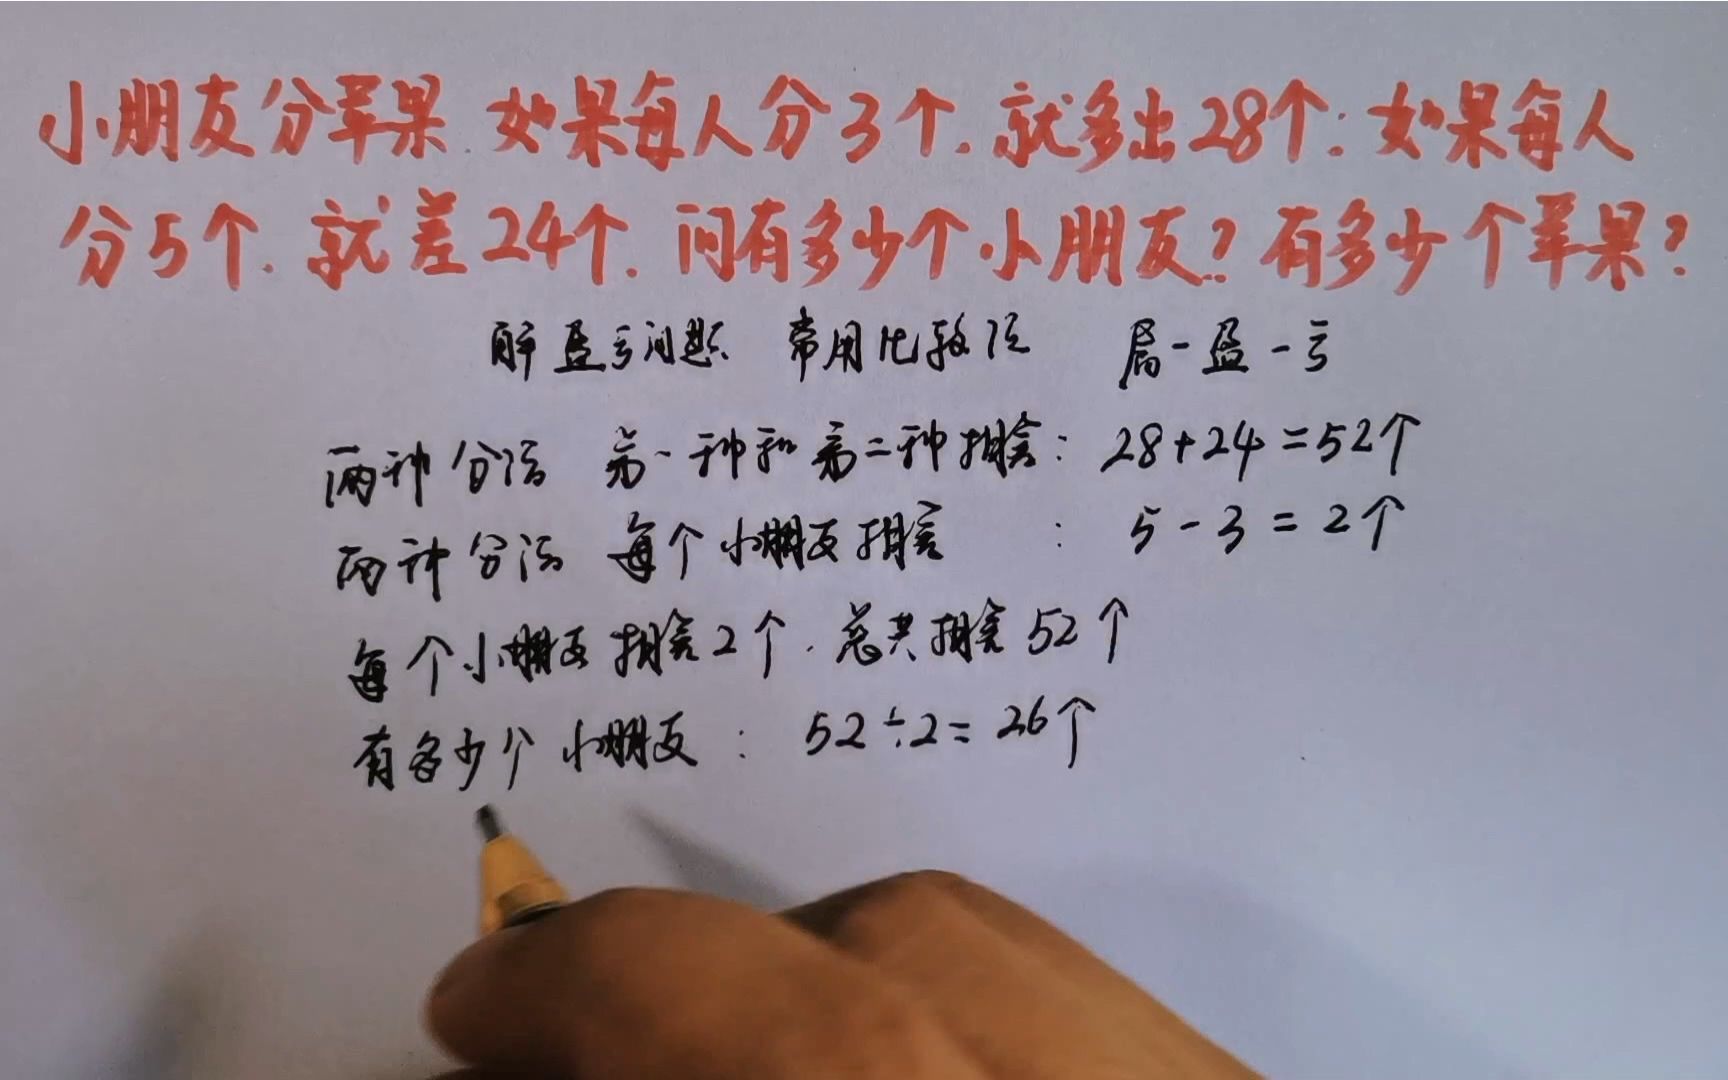 小朋友分苹果.如果每人分3个.就多出28个;如果每人
分5个.就差24个.问有多少个小朋友?有多少个苹果?
解盈亏问题 常用比较法 属一盈一亏
两种分法 第一种和第二种相差: 28+24=52个
两种分法 每个小朋友相差 : 5-3=2个
每个小朋友相差2个.总共相差52个
有多少个小朋友: 52÷2=26个